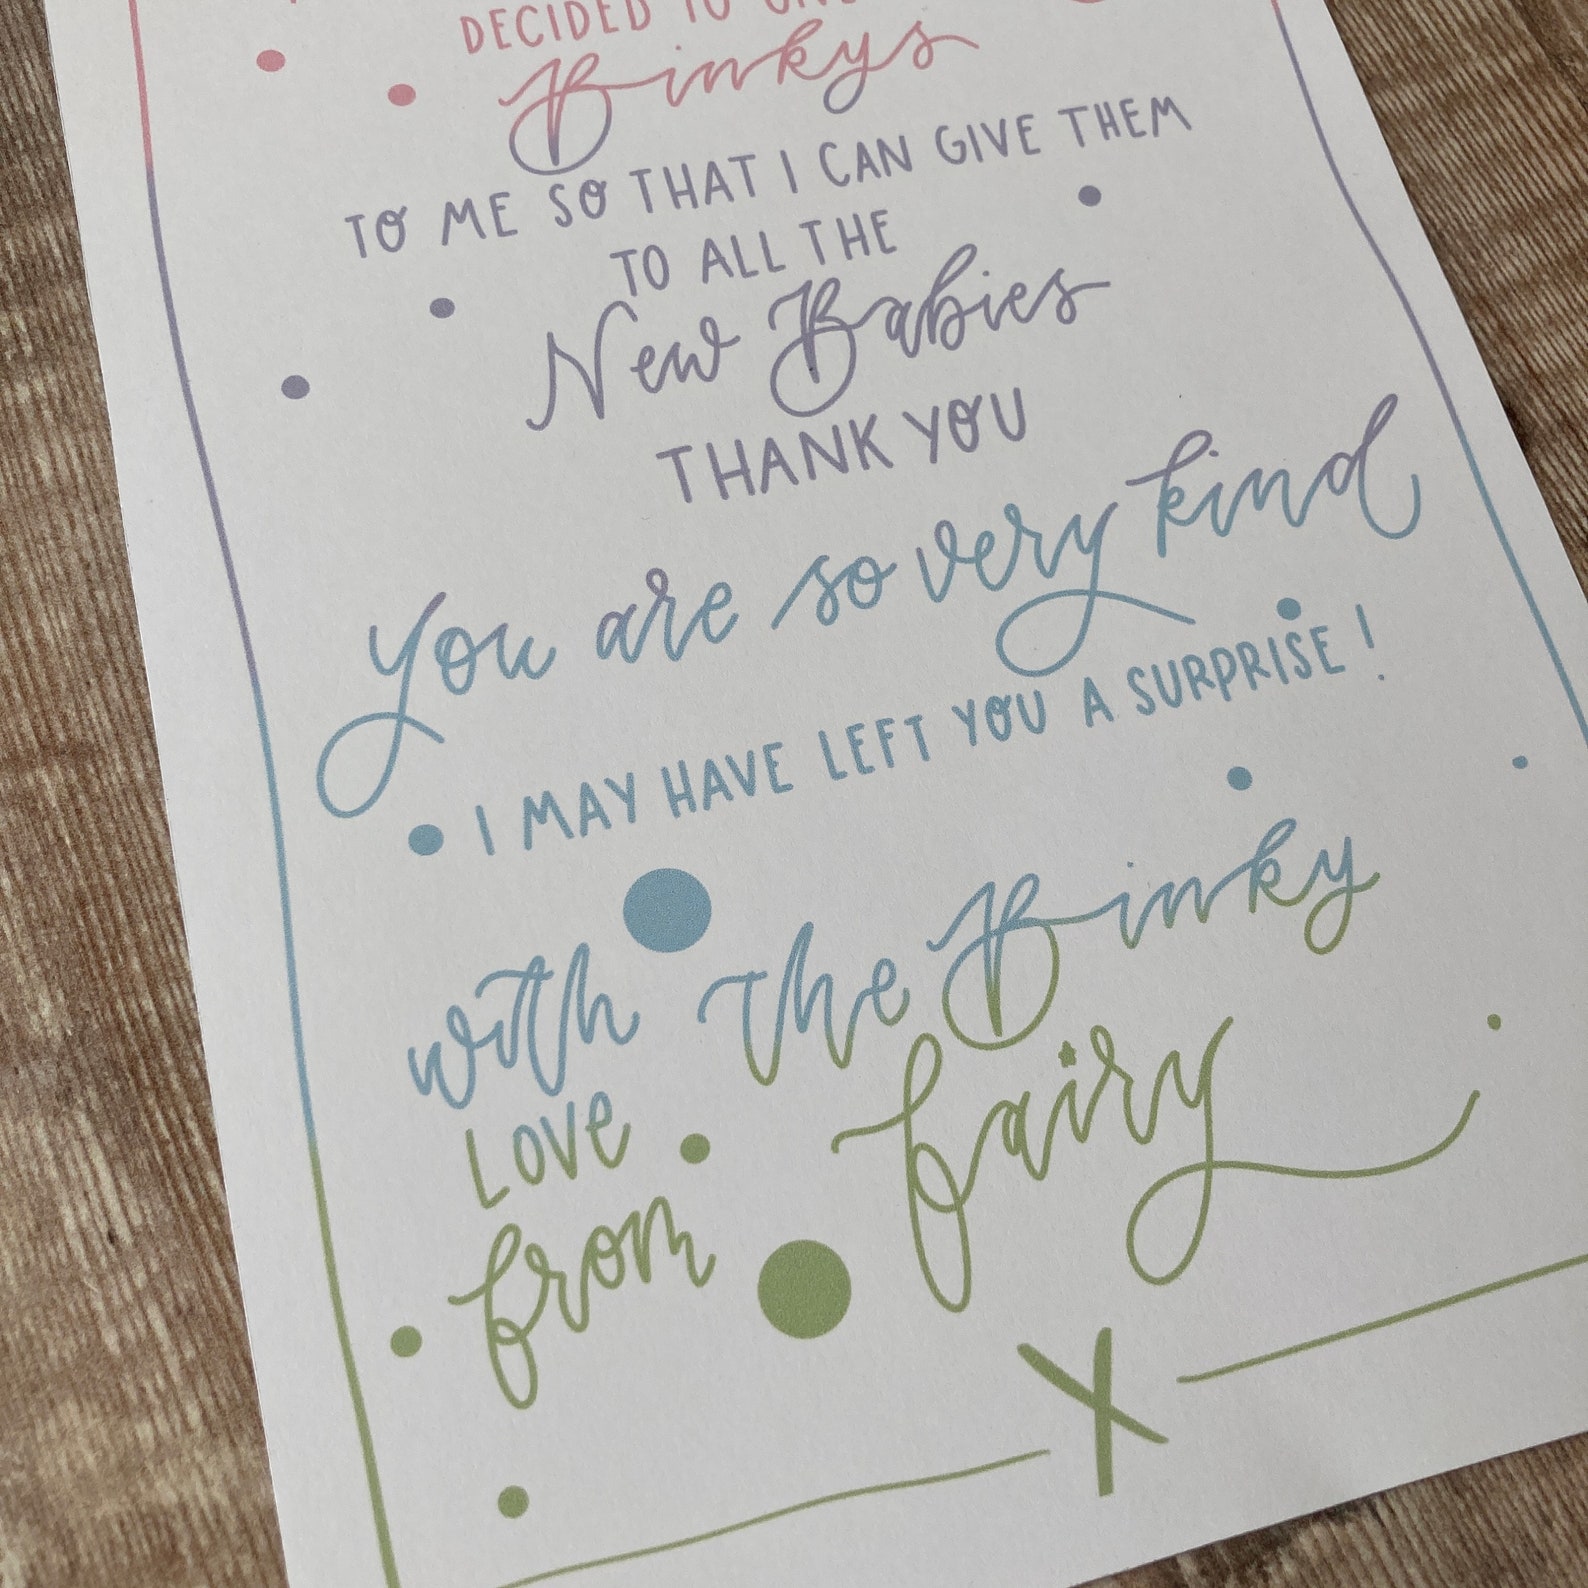 DECIDED TO
Binkys
TO ME SO THAT I CAN GIVE THEM
TO ALL THE
New Babies
THANK YOU
You are so very kind
I MAY HAVE LEFT YOU A SURPRISE!
with the Binky
LOVE fairy
from
X